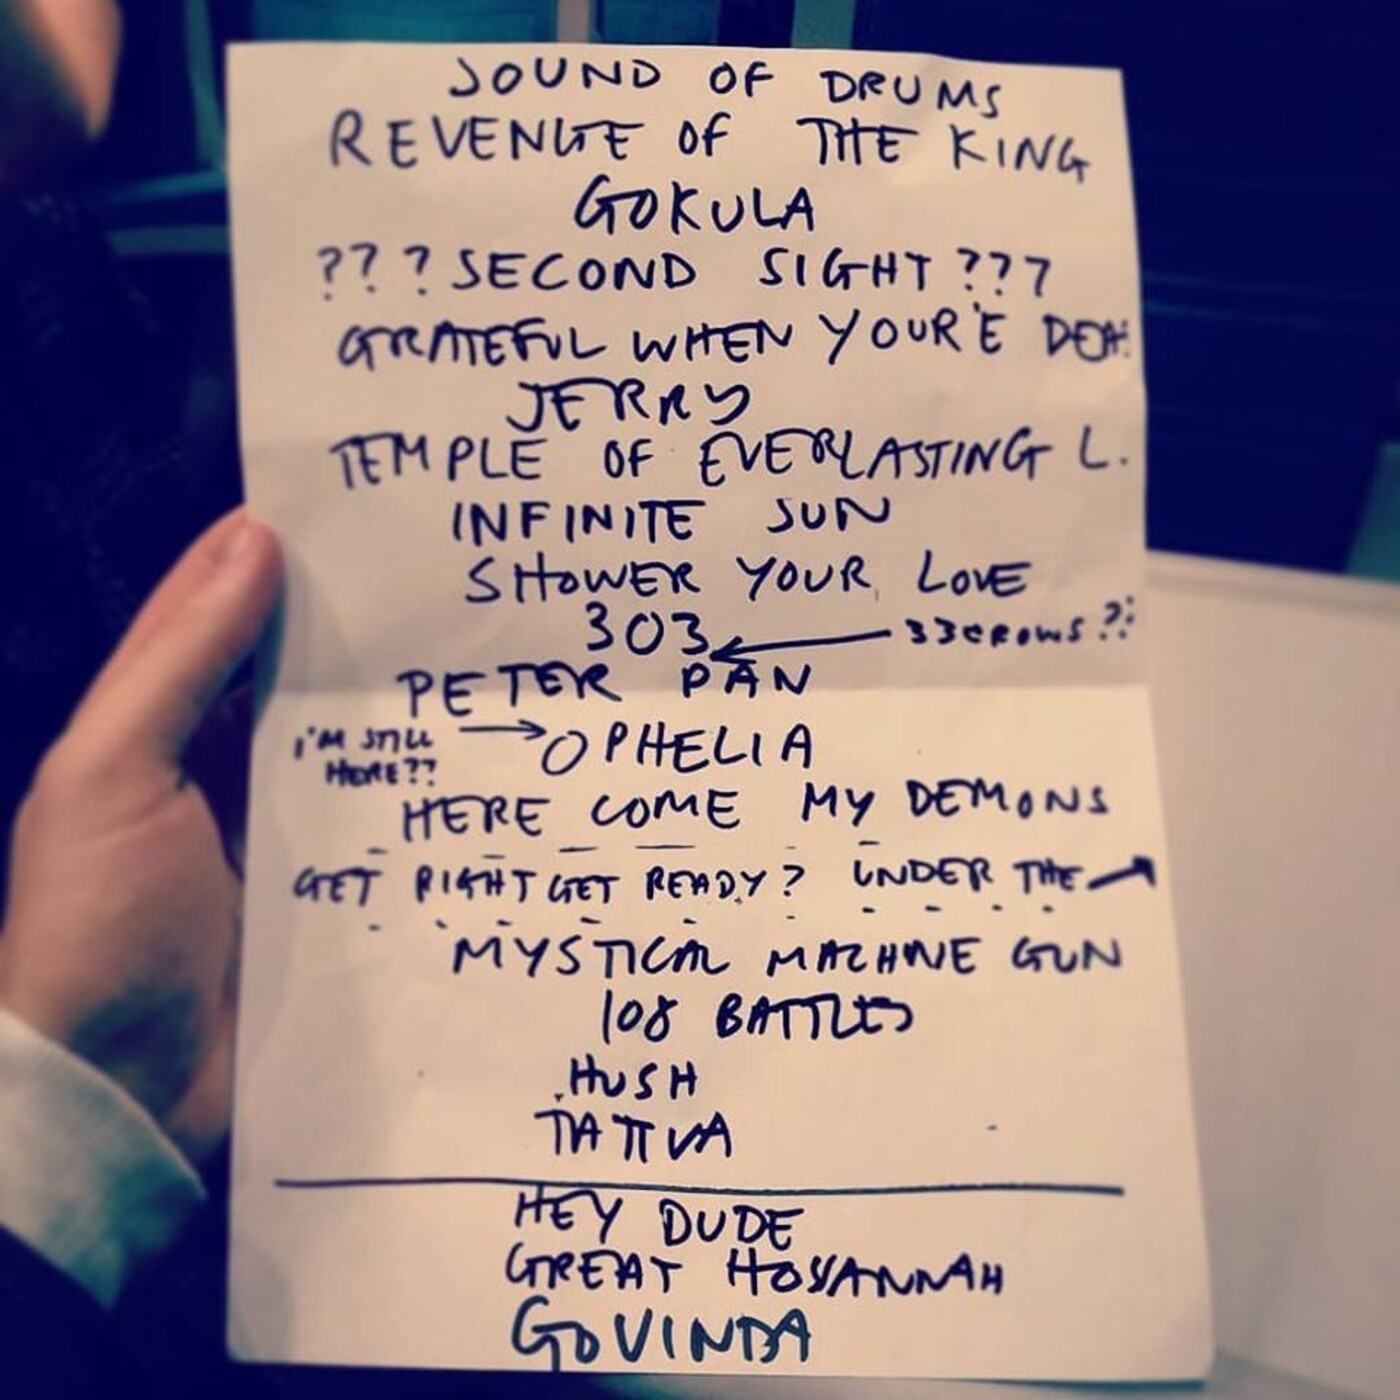 SOUND OF DRUMS
REVENGE OF THE KING
GOKULA
???SECOND SIGHT???
GRATEFUL WHEN YOUR'E DEA
JERRY
TEMPLE OF EVERLASTING L.
INFINITE SUN
SHOWER YOUR LOVE
303 ← 33CROWS??
PETER PAN
I'M STILL HERE?? → OPHELIA
HERE COME MY DEMONS
GET RIGHT GET READY? UNDER THE
MYSTICAL MACHINE GUN
108 BATTLES
HUSH
TATTVA
HEY DUDE
GREAT HOSSANNAH
GOVINDA